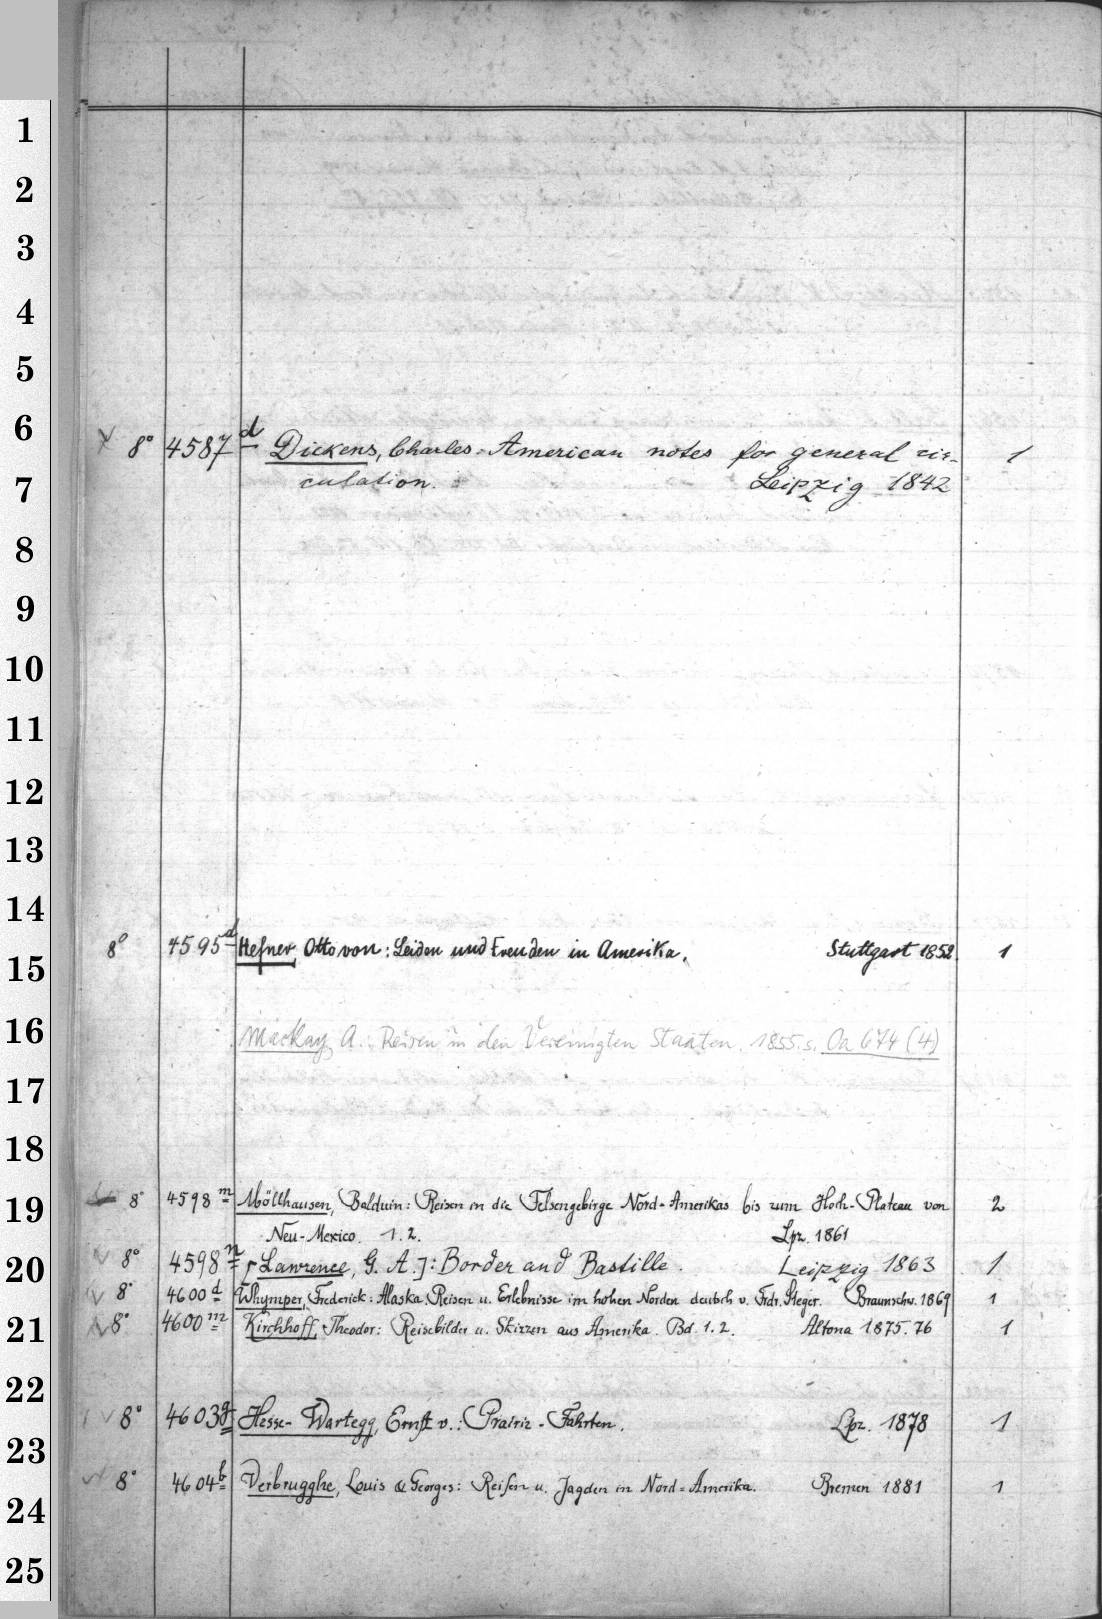 1
2
3
4
5
6
8° 4587 d Dickens, Charles: American notes for general cir- 1
7
culation. Leipzig 1842
8
9
10
11
12
13
14
8° 4595 d Hefner, Otto von: Leiden und Freuden in Amerika. Stuttgart 1852. 1
15
16
Mackay, A.: Reisen in den Vereinigten Staaten. 1855. s. Oa 674 (4)
17
18
19
8° 4598 m Möllhausen, Balduin: Reisen in die Felsengebirge Nord-Amerikas bis zum Hoch-Plateau von 2
Neu-Mexico. 1. 2. Lpz. 1861
20
8° 4598 n [Lawrence, G. A.]: Border and Bastille. Leipzig 1863 1
8° 4600 d Whymper, Frederick: Alaska, Reisen u. Erlebnisse im hohen Norden deutsch v. Frdr. Steger. Braunschw. 1869 1
21
8° 4600 m Kirchhoff, Theodor: Reisebilder u. Skizzen aus Amerika. Bd. 1. 2. Altona 1875. 76 1
22
8° 4603 g Hesse-Wartegg, Ernst v.: Prairie-Fahrten. Lpz. 1878 1
23
8° 4604 b Verbrugghe, Louis & Georges: Reisen u. Jagden in Nord-Amerika. Bremen 1881 1
24
25